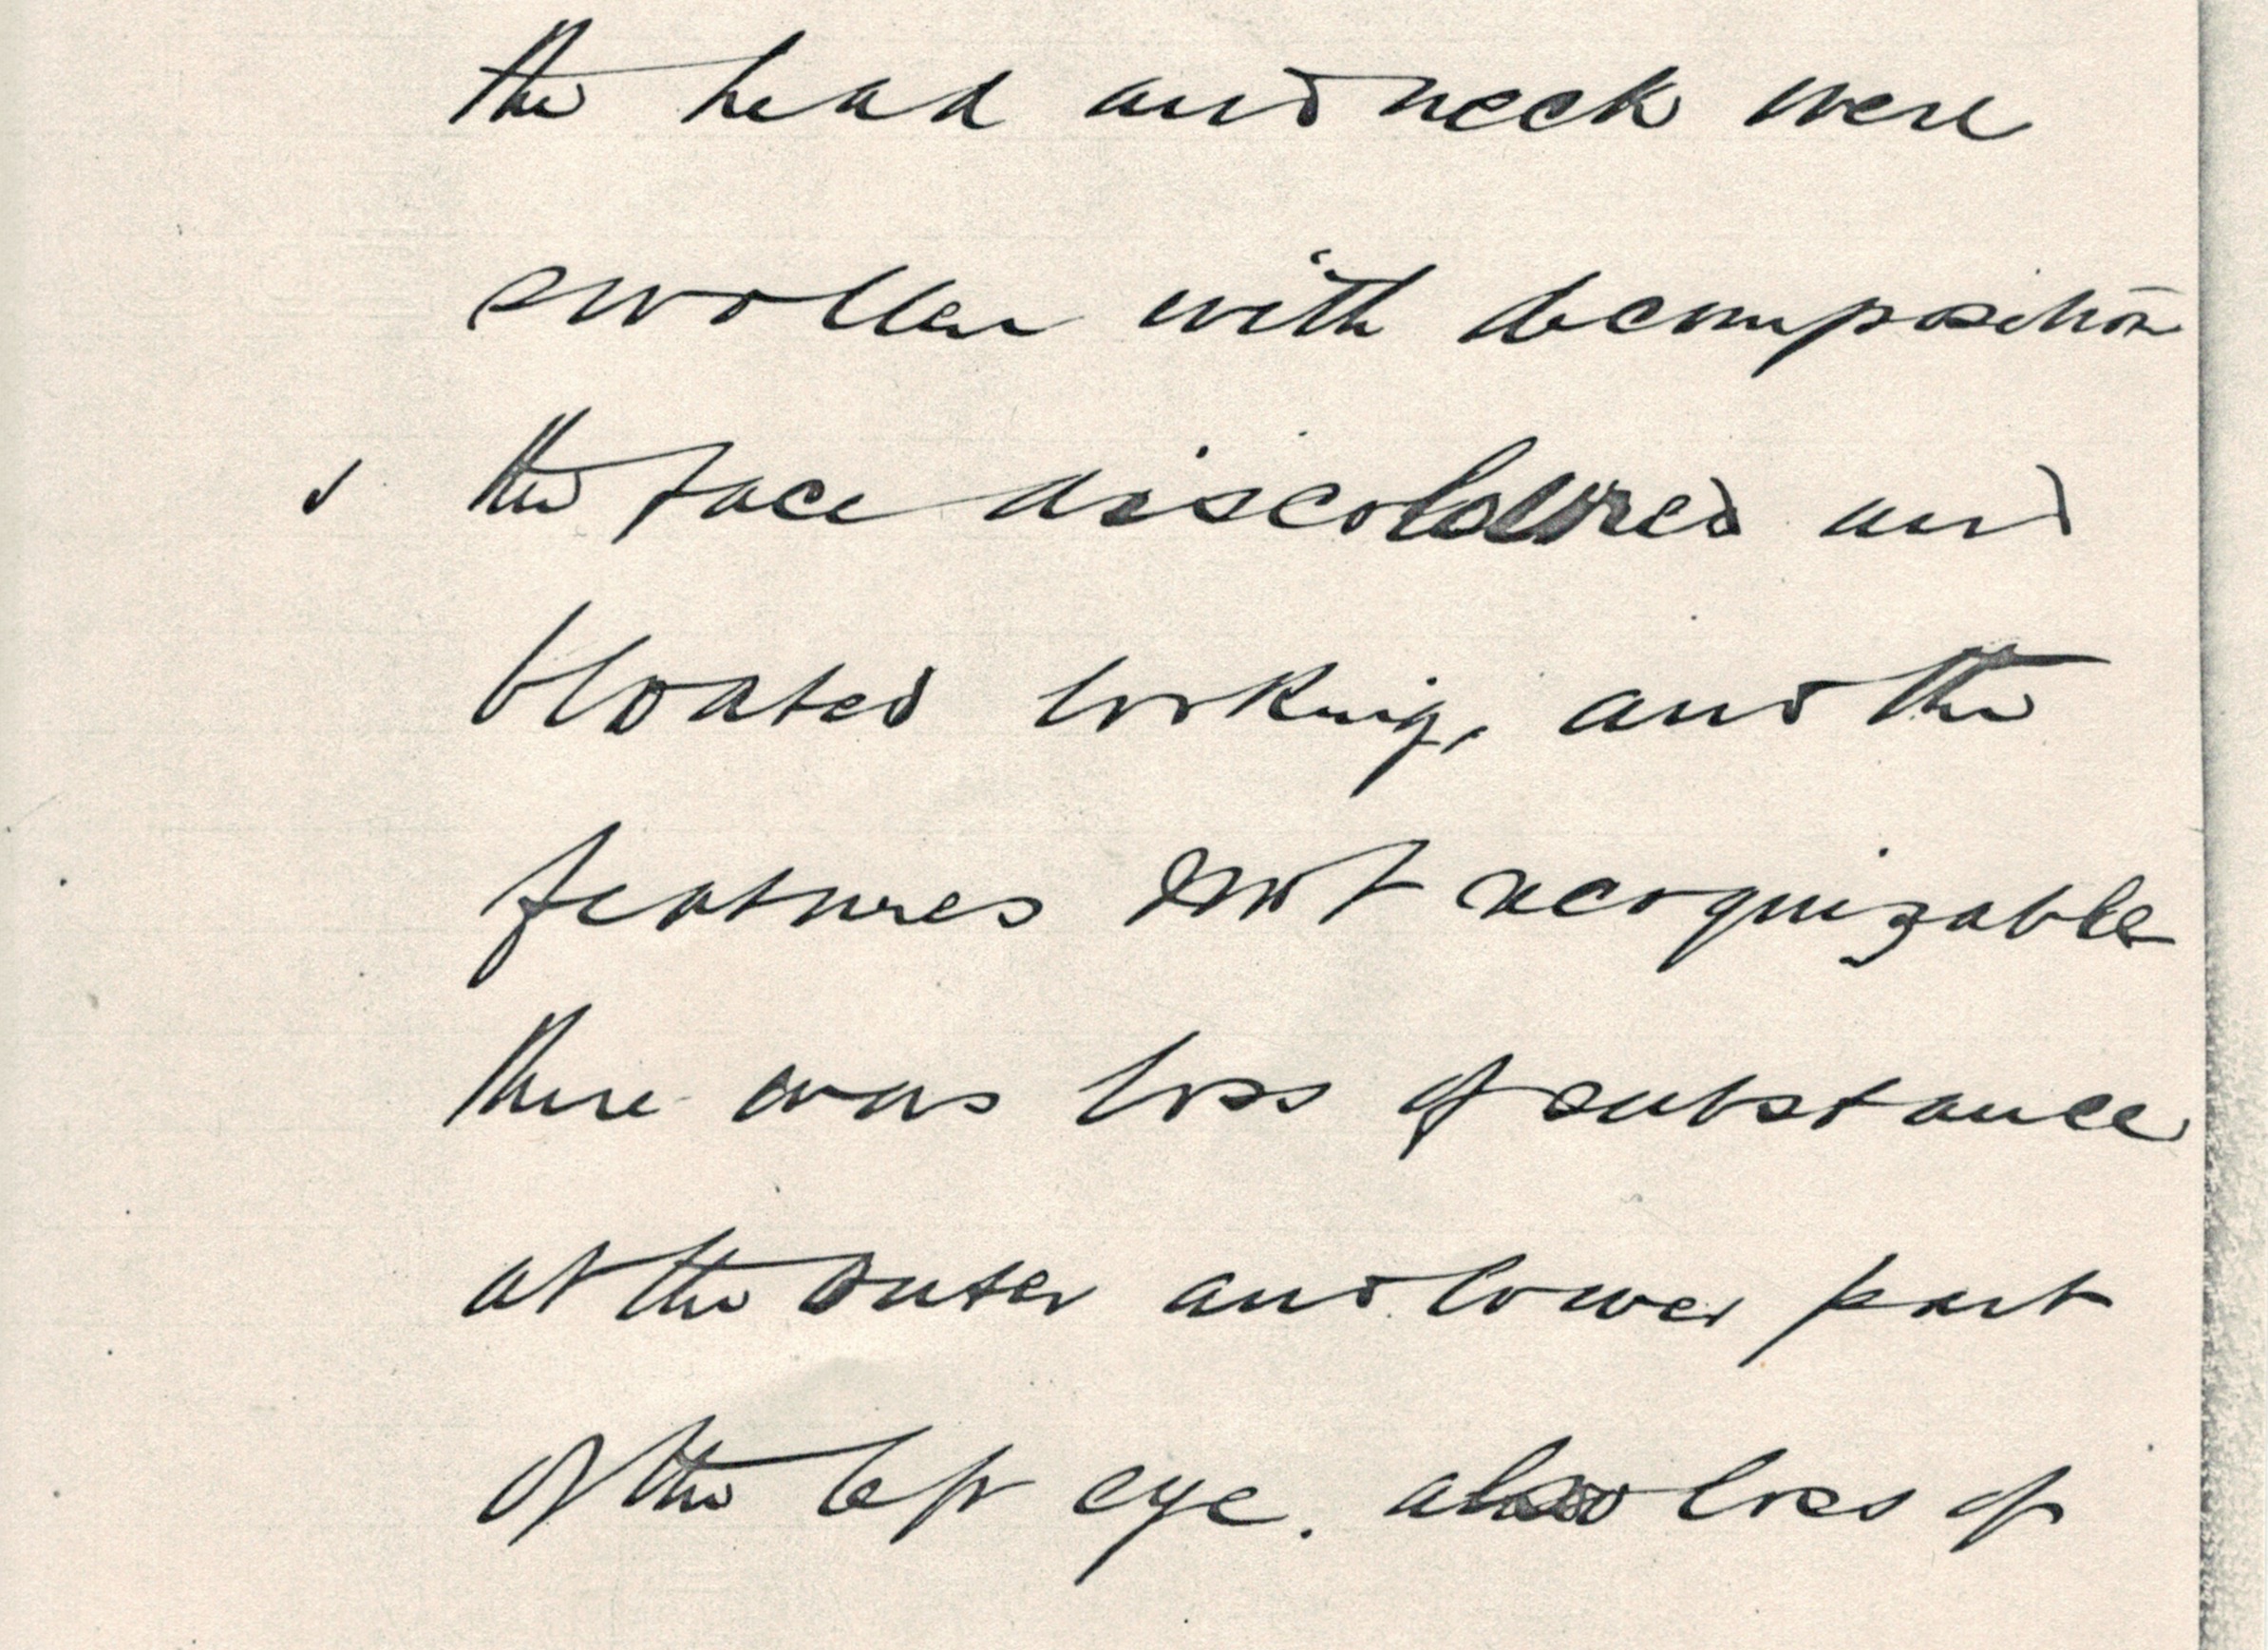 the head and neck were
swollen with decomposition
the face discoloured and
bloated looking, and the
features not recognizable
there was loss of substance
at the outer and lower part
of the left eye. also loss of